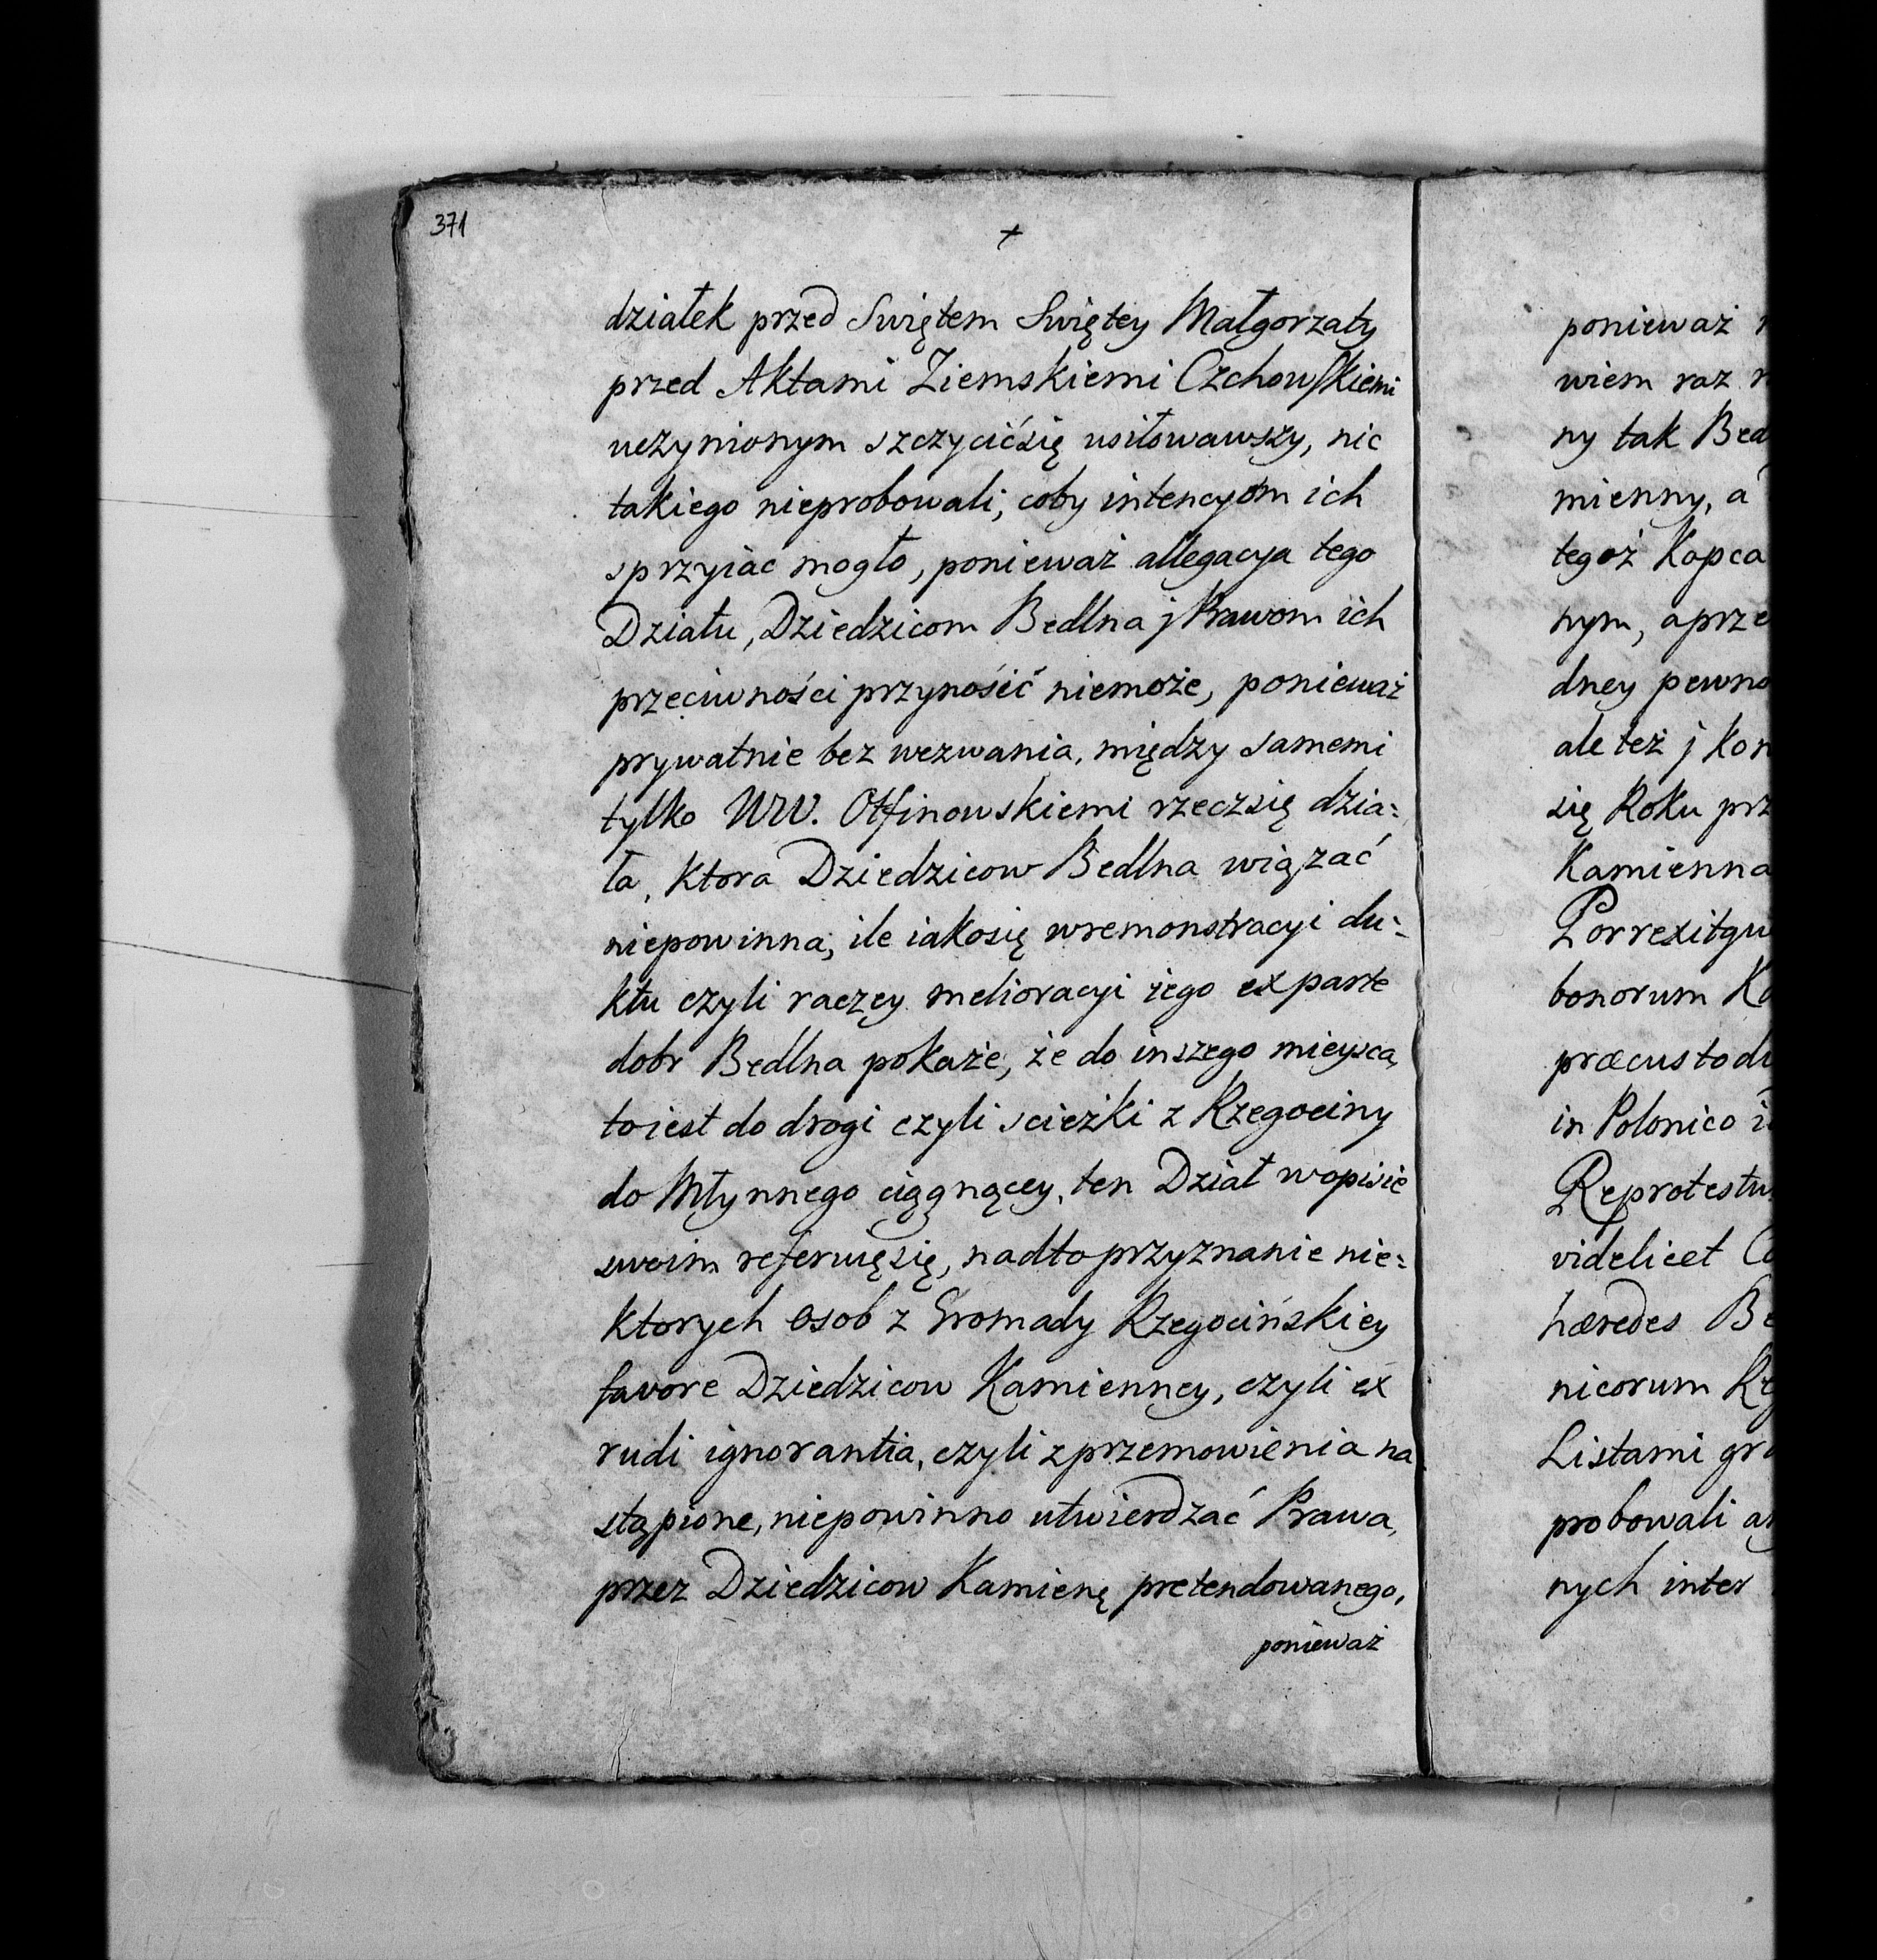 371
+
działek przed Swiętem Swiętey Małgorzaty
przed Aktami Ziemskiemi Czchowskiemi
uczynionym szczycićsię usiłowawszy, nic
takiego nieprobowali, coby intencyom ich
sprzyiac mogło, ponieważ allegacya tego
Działu, Dziedzicom Bedlna j Prawom ich
przeciwności przynosić niemoże, ponieważ
prywatnie bez wezwania, między samemi
tylko WW. Otfinowskiemi rzeczsię dzia:
ła, ktora Dziedzicow Bedlna wiązać
niepowinna, ile iakosię wremonstracyi du:
ktu czyli raczey melioracyi iego ex parte
dobr Bedlna pokaże, że do inszego mieysca,
toiest do drogi czyli scieżki z Rzegociny
do Młynnego ciągnącey, ten Dział wopisie
swoim referuięsię, nadto przyznanie nie:
ktorych osob z Gromady Rzegocińskiey
favore Dziedzicow Kamienney, czyli ex
rudi ignorantia, czyli zprzemowienia na
stąpione, niepowinno utwierdzać Prawa,
przez Dziedzicow Kamienę pretendowanego,
ponieważ
ponieważ
wiem raz
ny tak Bed
mienny, a
tegoż Kopca
nym, aprze
dney pewno
ale też j kon
się Roku prz
Kamienna
Porrexitqu
bonorum Ka
præcustodi
in Polonico
Reprotestu
videlicet
hæredes Be
nicorum Rz
Listami gra
probowali
nych inter